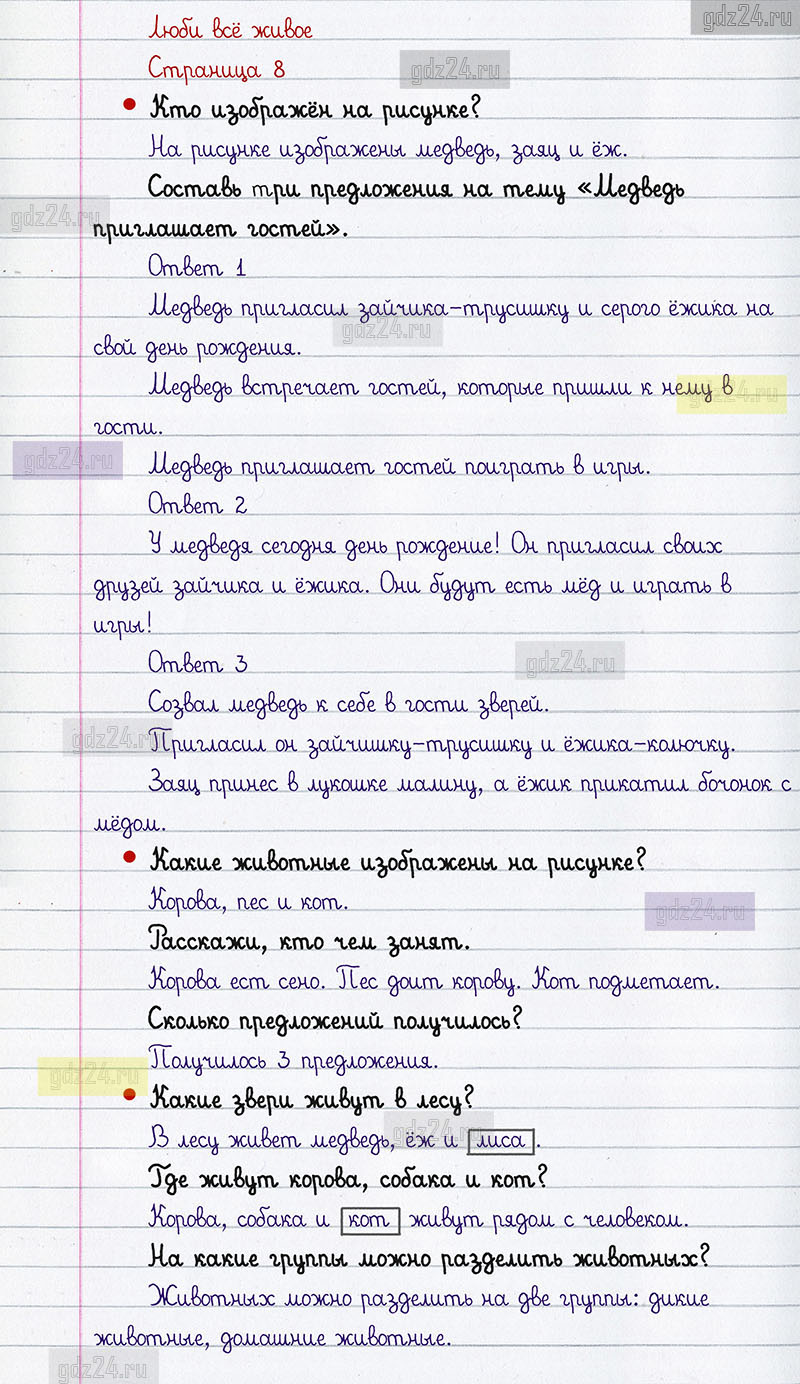 gdz24.ru
Люби всё живое
Страница 8
gdz24.ru
Кто изображён на рисунке?
На рисунке изображены медведь, заяц и ёж.
Составь три предложения на тему «Медведь
gdz24.ru
приглашает гостей».
Ответ 1
Медведь пригласил зайчика-трусишку и серого ёжика на
gdz24.ru
свой день рождения.
Медведь встречает гостей, которые пришли к нему в
gdz24.ru
гости.
gdz24.ru
Медведь приглашает гостей поиграть в игры.
Ответ 2
У медведя сегодня день рождение! Он пригласил своих
друзей зайчика и ёжика. Они будут есть мёд и играть в
игры!
Ответ 3
gdz24.ru
Созвал медведь к себе в гости зверей.
gdz24.ru
Пригласил он зайчишку-трусишку и ёжика-колючку.
Заяц принес в лукошке малину, а ёжик прикатил бочонок с
мёдом.
Какие животные изображены на рисунке?
Корова, пес и кот.
gdz24.ru
Расскажи, кто чем занят.
Корова ест сено. Пес доит корову. Кот подметает.
Сколько предложений получилось?
Получилось 3 предложения.
gdz24.ru
Какие звери живут в лесу?
gdz24.ru
В лесу живет медведь, ёж и лиса.
Где живут корова, собака и кот?
Корова, собака и кот живут рядом с человеком.
На какие группы можно разделить животных?
Животных можно разделить на две группы: дикие
животные, домашние животные.
gdz24.ru